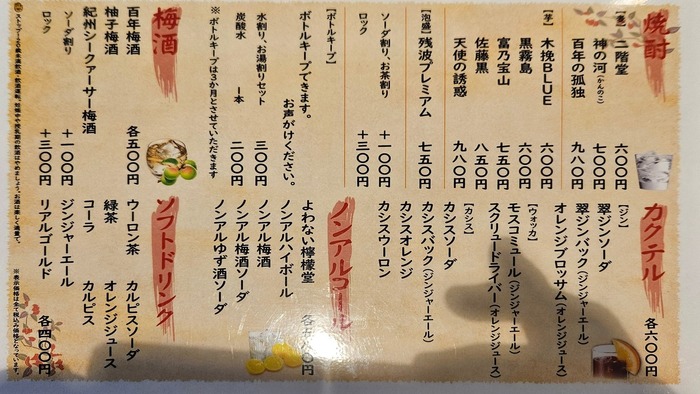 焼酎
【麦】
二階堂 六〇〇円
神の河(かんのこ) 七〇〇円
百年の孤独 九八〇円
【芋】
木挽BLUE 六〇〇円
黒霧島 六〇〇円
富乃宝山 七五〇円
佐藤黒 八五〇円
天使の誘惑 九八〇円
【泡盛】
残波プレミアム 七五〇円
ソーダ割り、お茶割り +一〇〇円
ロック +三〇〇円
【ボトルキープ】
ボトルキープできます。
お声がけください。
水割り、お湯割りセット 三〇〇円
炭酸水 一本 二〇〇円
※ボトルキープは3か月とさせていただきます
梅酒
百年梅酒
柚子梅酒
紀州シークァーサー梅酒
各五〇〇円
ソーダ割り +一〇〇円
ロック +三〇〇円
カクテル 各六〇〇円
【ジン】
翠ジンソーダ
翠ジンバック(ジンジャーエール)
オレンジブロッサム(オレンジジュース)
【ウォッカ】
モスコミュール(ジンジャーエール)
スクリュードライバー(オレンジジュース)
【カシス】
カシスソーダ
カシスバック(ジンジャーエール)
カシスオレンジ
カシスウーロン
ノンアルコール
よわない檸檬堂
ノンアルハイボール
ノンアル梅酒
ノンアル梅酒ソーダ
ノンアルゆず酒ソーダ
ソフトドリンク
ウーロン茶 カルピスソーダ
緑茶 オレンジジュース
コーラ カルピス
ジンジャーエール
リアルゴールド 各四〇〇円
※表示価格は全て税込み価格となっています。